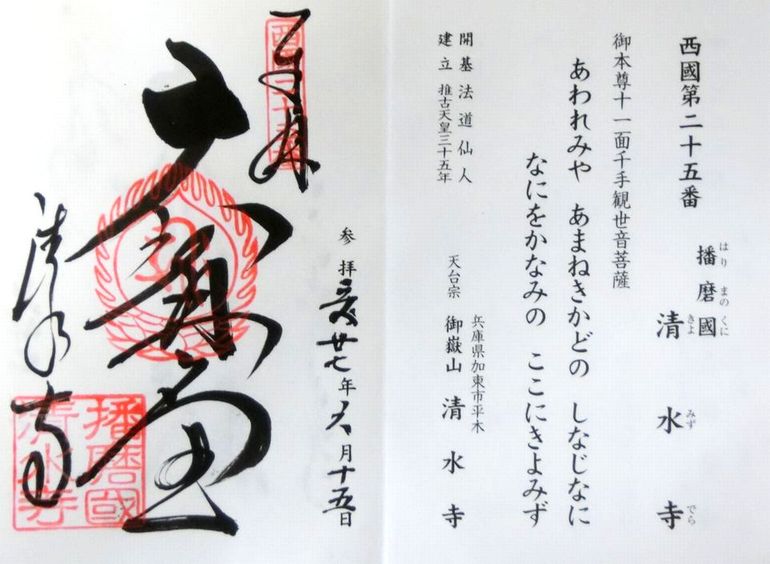 西國第二十五番
播磨國
はり まの くに
清水寺
きよ みず でら
御本尊十一面千手観世音菩薩
あわれみや あまねきかどの しなじなに
なにをかなみの ここにきよみず
開基法道仙人
建立 推古天皇三十五年
兵庫県加東市平木
天台宗 御嶽山 清水寺
参拝 廿七年六月十五日
清水寺
播磨國
清水寺